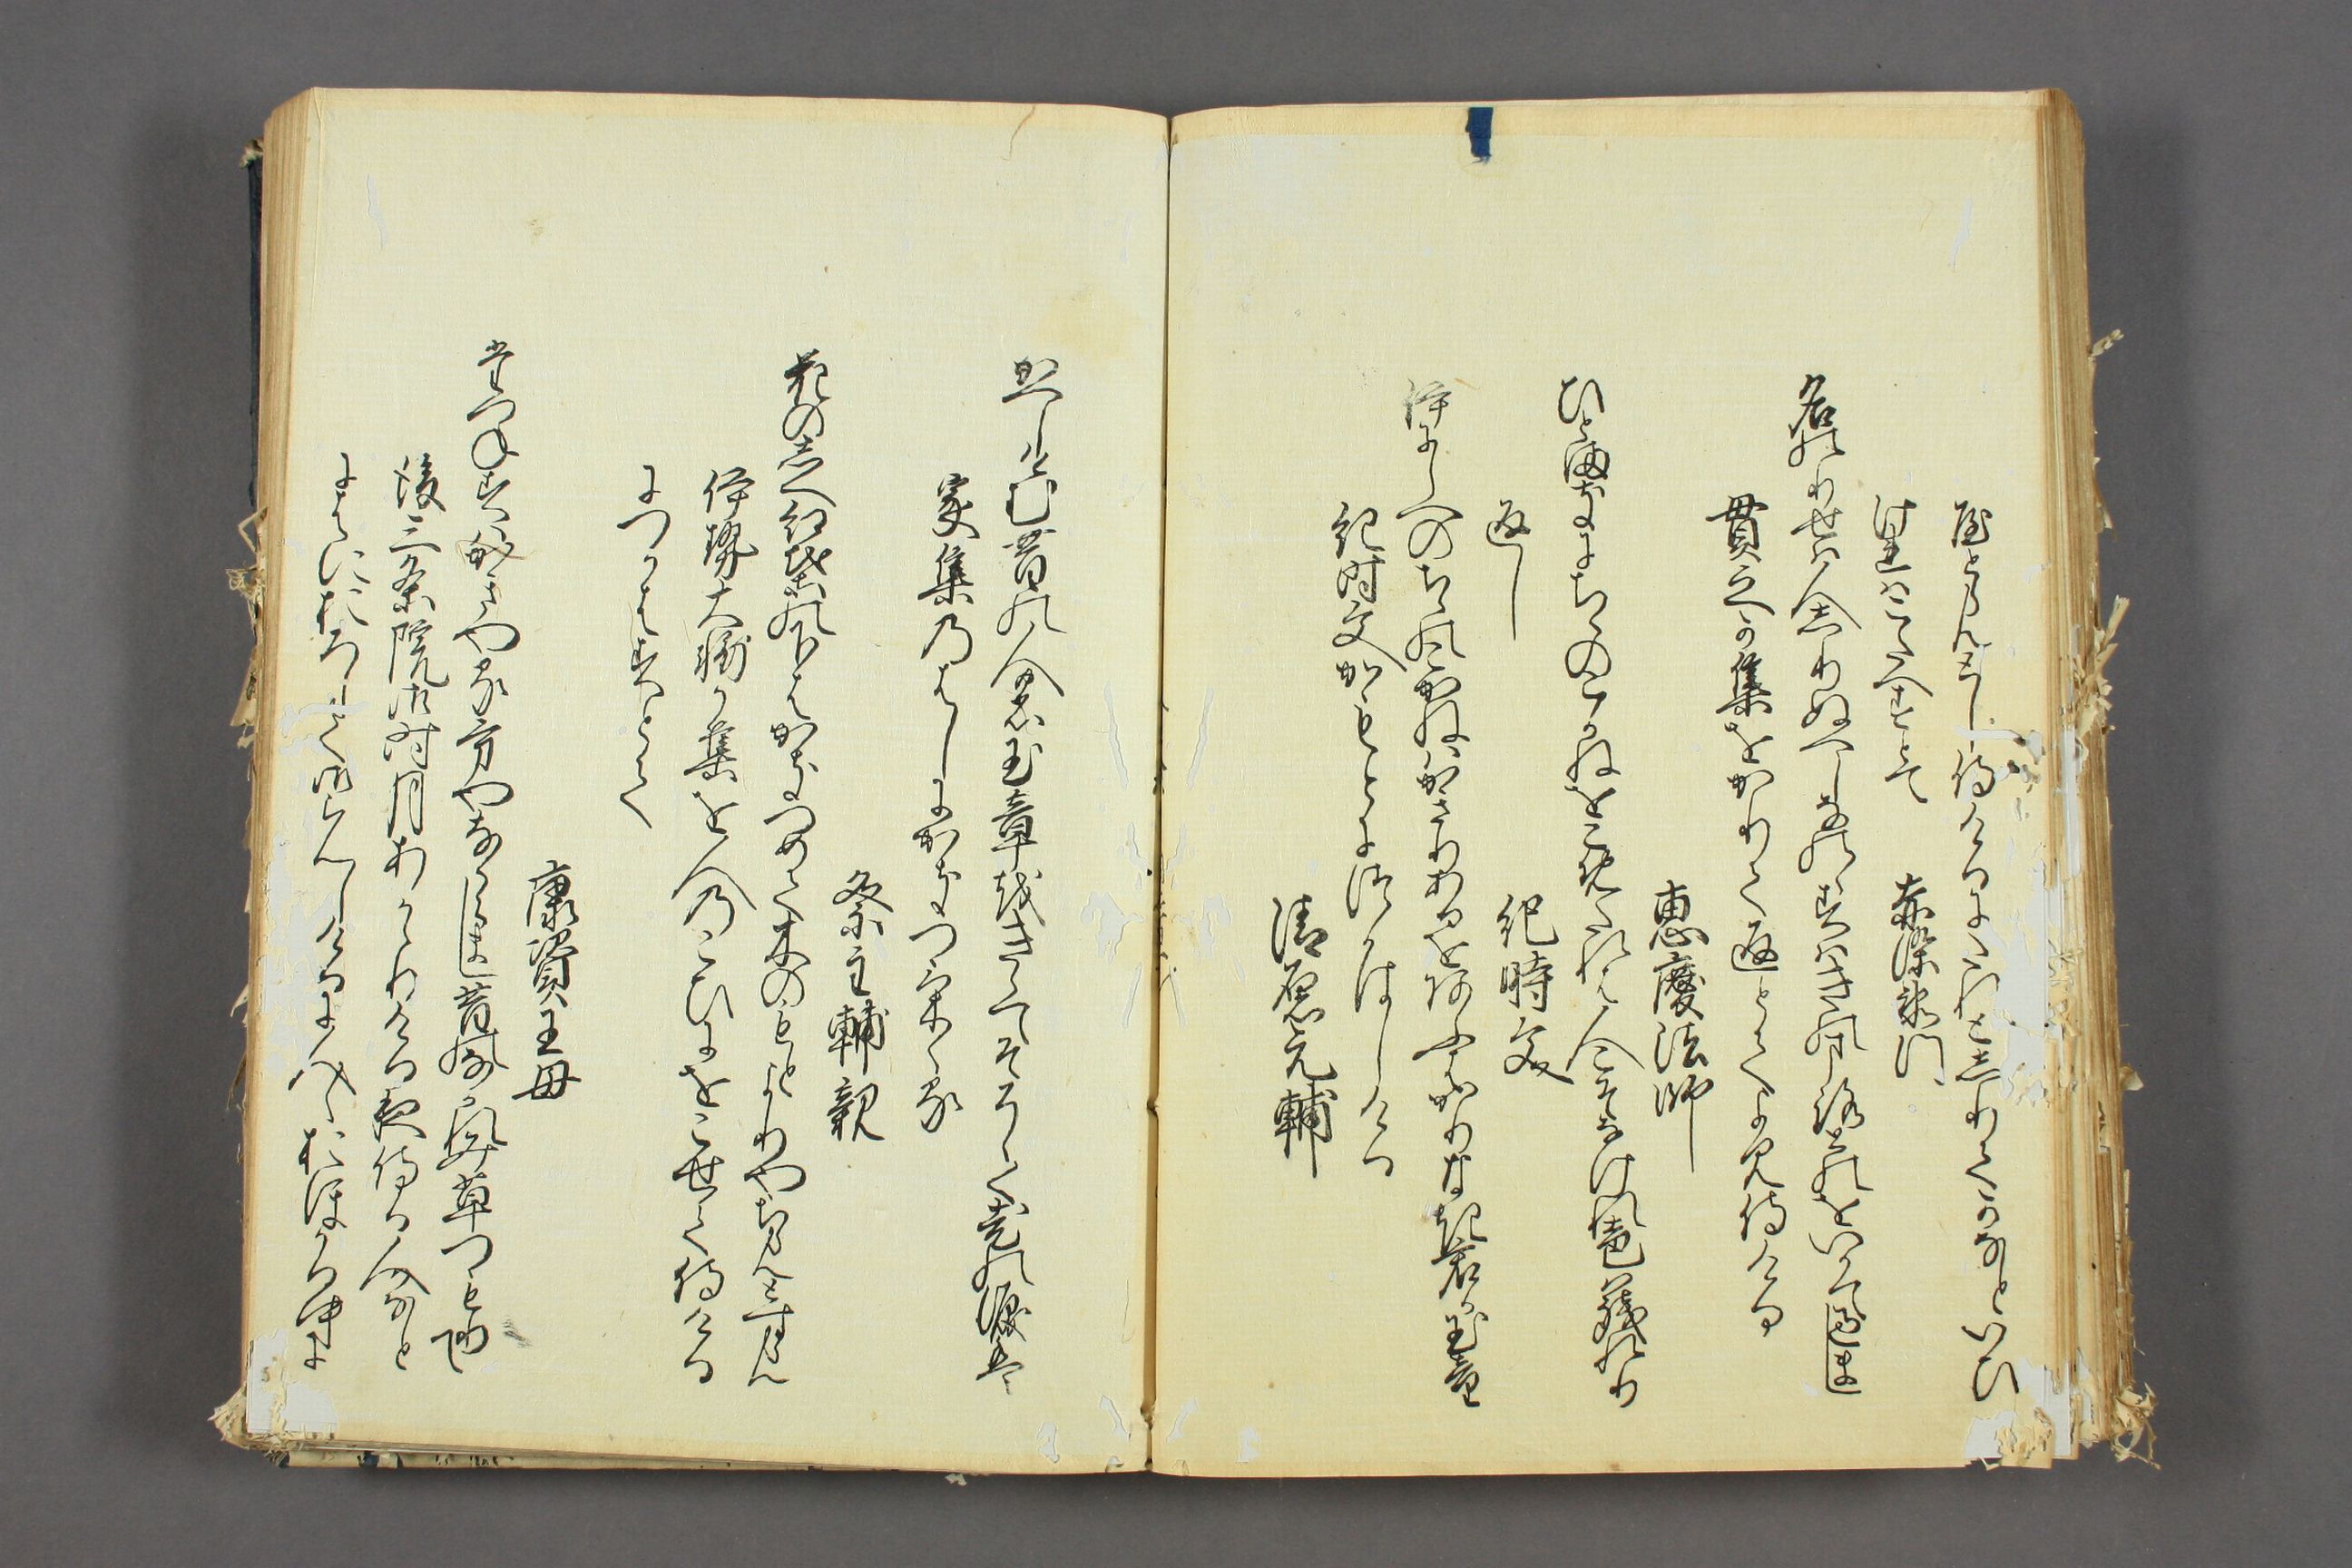 屋とらんとし侍けるにたれとしりてかなといひ
けれはこたへすとて　赤染衛門
名のりせは人しりぬへしなのらすはきの丸とのをいかて過まし
貫之か集をかりて返とてよみ侍ける
恵慶法師
ひとまきにちゝのこかねをこめたれは人こそなけれ声は残れり
返し　紀時文
いにしへのちゝのこかねはかきりあるをあふはかりなき君か玉章
紀時文かもとに法かはしける
清原元輔
かへしけむ昔の人の玉章をきゝてそそゝく老の涙は
家集のはしにかきつけ
祭主輔親
花のしへ紅葉の下はかきつめて木のもとよりやちらんとすらん
伊勢大輔か集を人のこひにをこせて侍ける
につかはすとて
康資王母
たつねすはかきやる方やなからまし昔の流み草つもりて
後三条院御時月あかゝりける夜侍る人なと
にはにおろして御らんしけるに人々おほかる中に